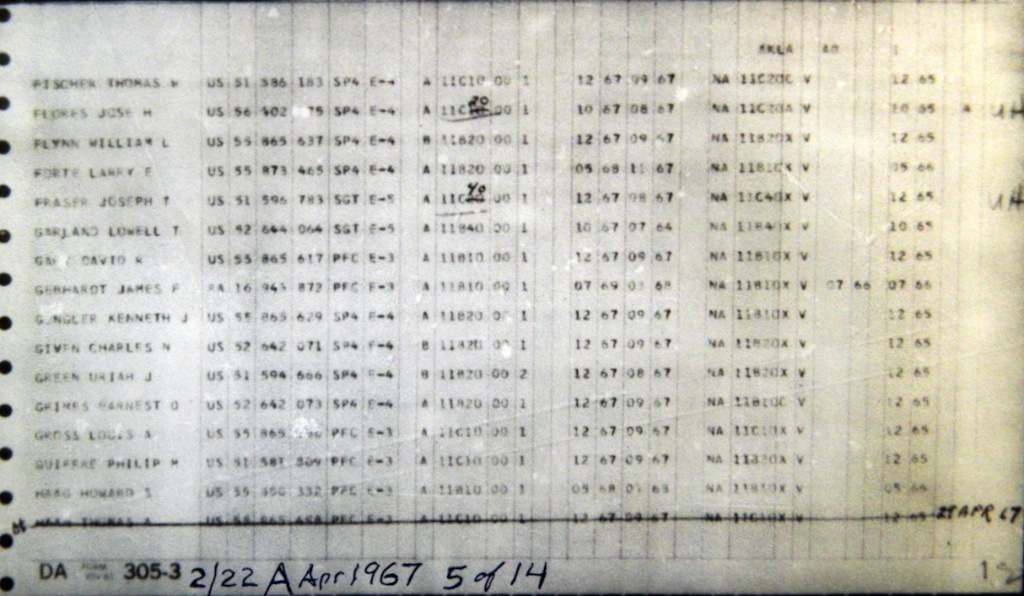 FISCHER THOMAS W US 51 586 183 SP4 E-4 A 11C10 00 1 12 67 09 67 NA 11C20C V 12 65
FLORES JOSE H US 56 402 SP4 E-4 A 11C 20 00 1 10 67 08 67 NA 11C20A V 10 65 UH
FLYNN WILLIAM L US 55 865 637 SP4 E-4 B 11B20 00 1 12 67 09 67 NA 11B20X V 12 65
FORTE LARRY E US 55 873 465 SP4 E-4 A 11B20 00 1 05 68 11 67 NA 11B1 X V 05 66
FRASER JOSEPH T US 51 596 783 SGT E-5 A 11C 40 00 1 12 67 08 67 NA 11C40X V 12 65 UH
GARLAND LOWELL T US 52 644 064 SGT E-5 A 11B40 00 1 10 67 07 64 NA 11B40X V 10 65
DAVID R US 55 865 617 PFC E-3 A 11B10 00 1 12 67 09 67 NA 11B10X V 12 65
GEBHARDT JAMES F RA 16 943 872 PFC E-3 A 11B10 00 1 07 69 68 NA 11B10X V 07 66 07 66
GUNGLER KENNETH J US 55 865 629 SP4 E-4 A 11B20 00 1 12 67 09 67 NA 11B10X V 12 65
GIVEN CHARLES N US 52 642 071 SP4 E-4 B 11B20 00 1 12 67 09 67 NA 11B20X V 12 65
GREEN URIAH J US 51 594 666 SP4 E-4 B 11B20 00 2 12 67 08 67 NA 11B20X V 12 65
GRIMES EARNEST O US 52 642 073 SP4 E-4 A 11B20 00 1 12 67 09 67 NA 11B10C V 12 65
GROSS LOUIS A US 55 865 PFC E-3 A 11C10 00 1 12 67 09 67 NA 11C10X V 12 65
GUIFFRE PHILIP M US 51 587 PFC E-3 A 11C10 00 1 12 67 09 67 NA V 12 65
HAAG HOWARD S US 55 332 PFC E-3 A 11B10 00 1 05 68 NA 11B10X V 05 66
HAAG THOMAS A US 55 865 PFC E-3 A 11C10 00 1 12 67 09 67 NA 11C10X V 12 65 29 APR 67
DA FORM 305-3 2/22 A Apr 1967 5 of 14